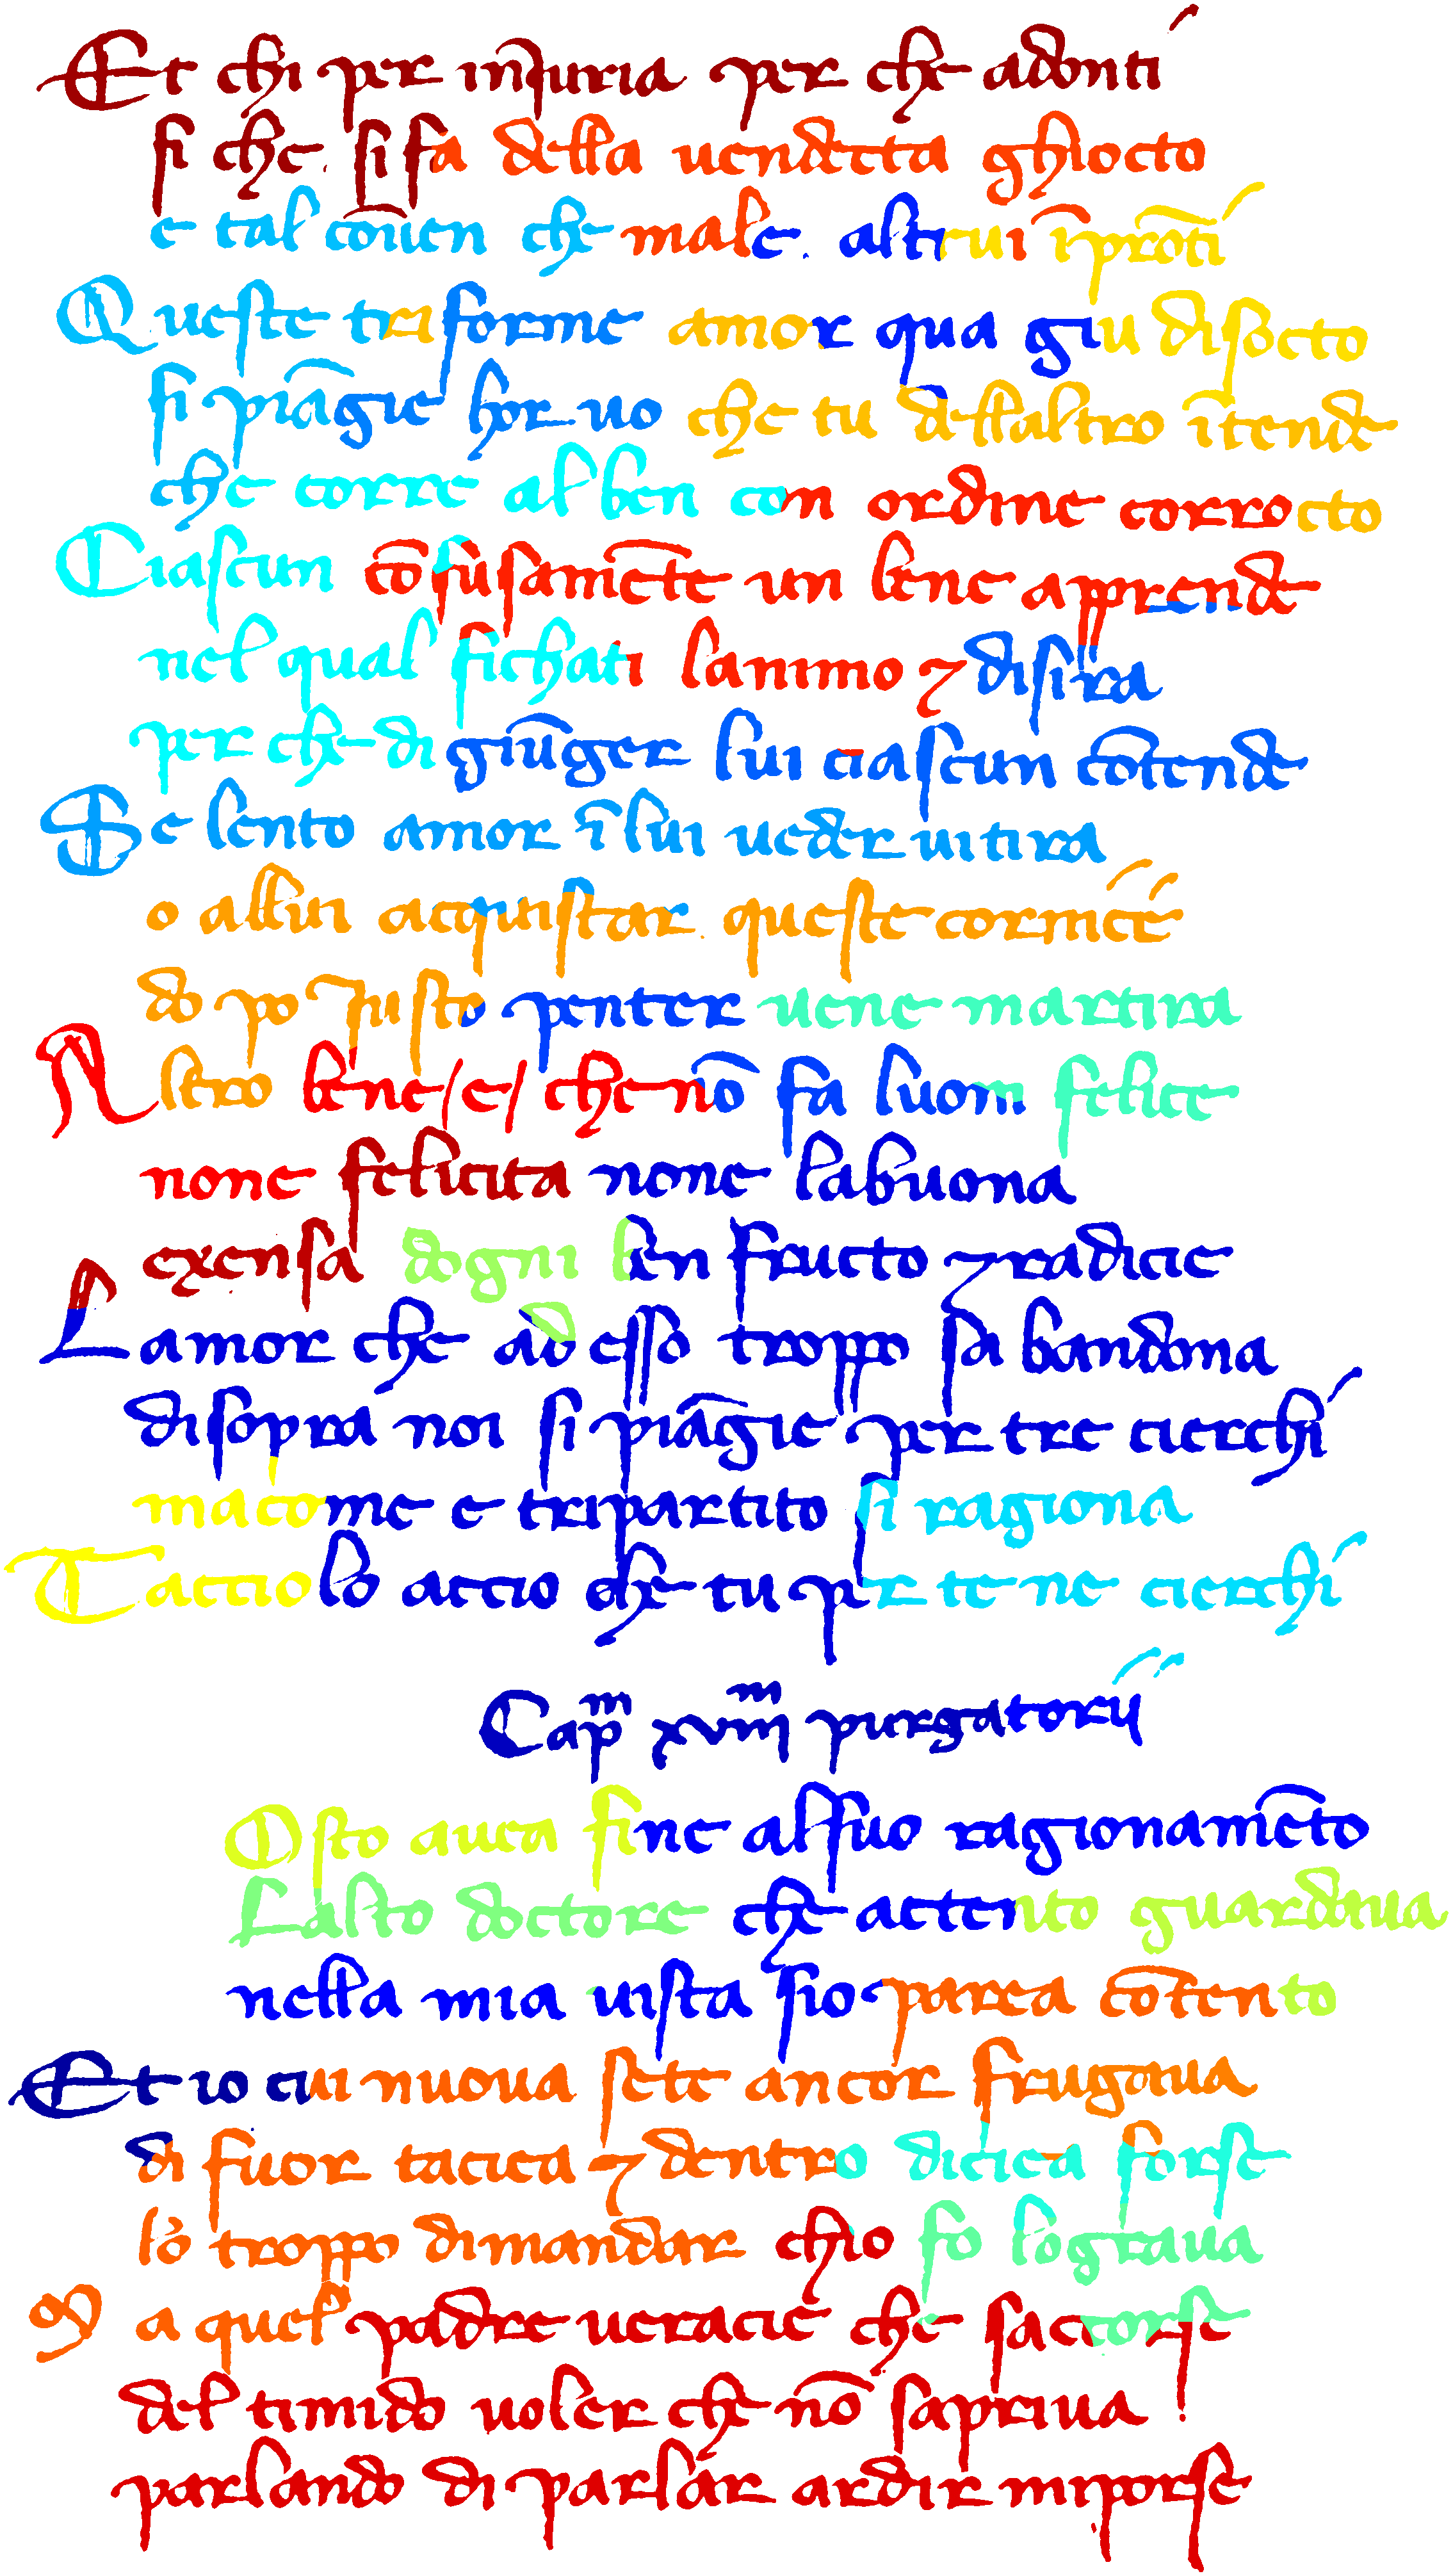 Et chi per inJuria per che adonti
si che. si fa della uendecta ghiocto
e tal cōuen che male. altrui īprōti
Queste triforme amor qua giu disocto
si piāgie hor uo che tu dellaltro ītende
che corre al ben con ordine corrocto
Ciascun cōfusamēte un bene apprende
nel qual sichati lanimo ⁊ disira
per che di giūger lui ciascun cōtende
Se lento amor ī lui ueder ui tira
o allui acquistar. queste cornicé
do po Justo penter uene martira
Altro bene /e/ che nō fa luom felice
none felicita none labuona
exensa dogni ben fructo ⁊ radicie
Lamor che ad esso troppo sa bandona
disopra noi si piāgie per tre cierchi
macome e tripartito si ragiona
Tacciolo accio che tu per te ne cierchi
Capᵐ xviiiᵐ purgatorij
Osto auea fine al suo ragionamēto
Lalto doctore che actento guardaua
nella mia uista sio parea cōtento
Et io cui nuoua sete ancor frugaua
di fuor tacica ⁊ dentro diciea forse
lo troppo dimandar chio fo lograua
M a quel padre ueracie che saccorse
del timido uoler che nō sapriua
parlando di parlar ardir miporse